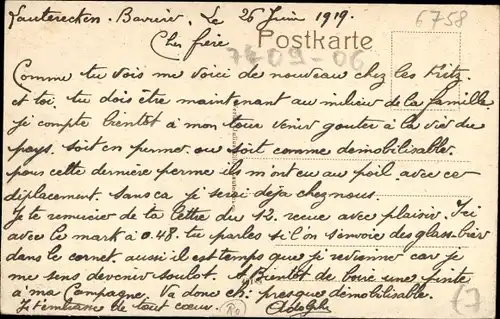 Lauterecken - Bavière, Le 26 Juin 1919.
6758
Cher frère
Postkarte
7709-06
Comme tu vois me voici de nouveau chez les Fritz
et toi, tu dois être maintenant au milieu de la famille
je compte bientôt à mon tour venir gouter à la vie du
pays. soit en perme ou soit comme démobilisable.
pour cette dernière perme ils m'ont eu au poil avec ce
déplacement. sans ca je serai déja chez nous.
Je te remercie de ta lettre du 12. recue avec plaisir. Ici
avec le mark à 0.48. tu parles si l'on s'envoie des glass-bier
dans le cornet. aussi il est temps que je revienne car je
me sens devenir soulot. A Bientot de boire une pinte
à ma Campagne. Va donc eh: presque démobilisable.
Je t'embrasse de tout cœur. Adolphe